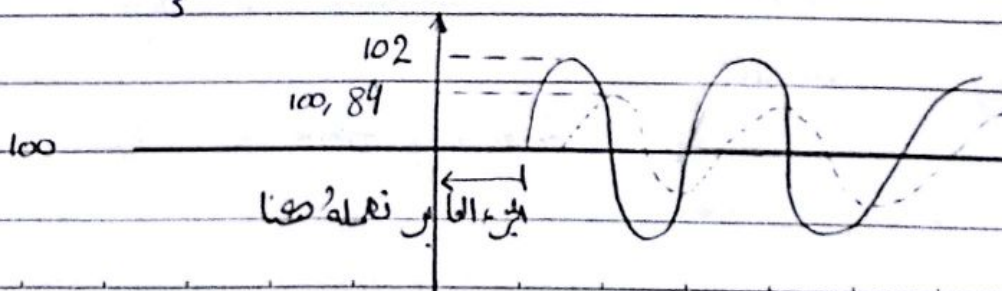 102
100,84
100
الجزء العابر نهمله هنا